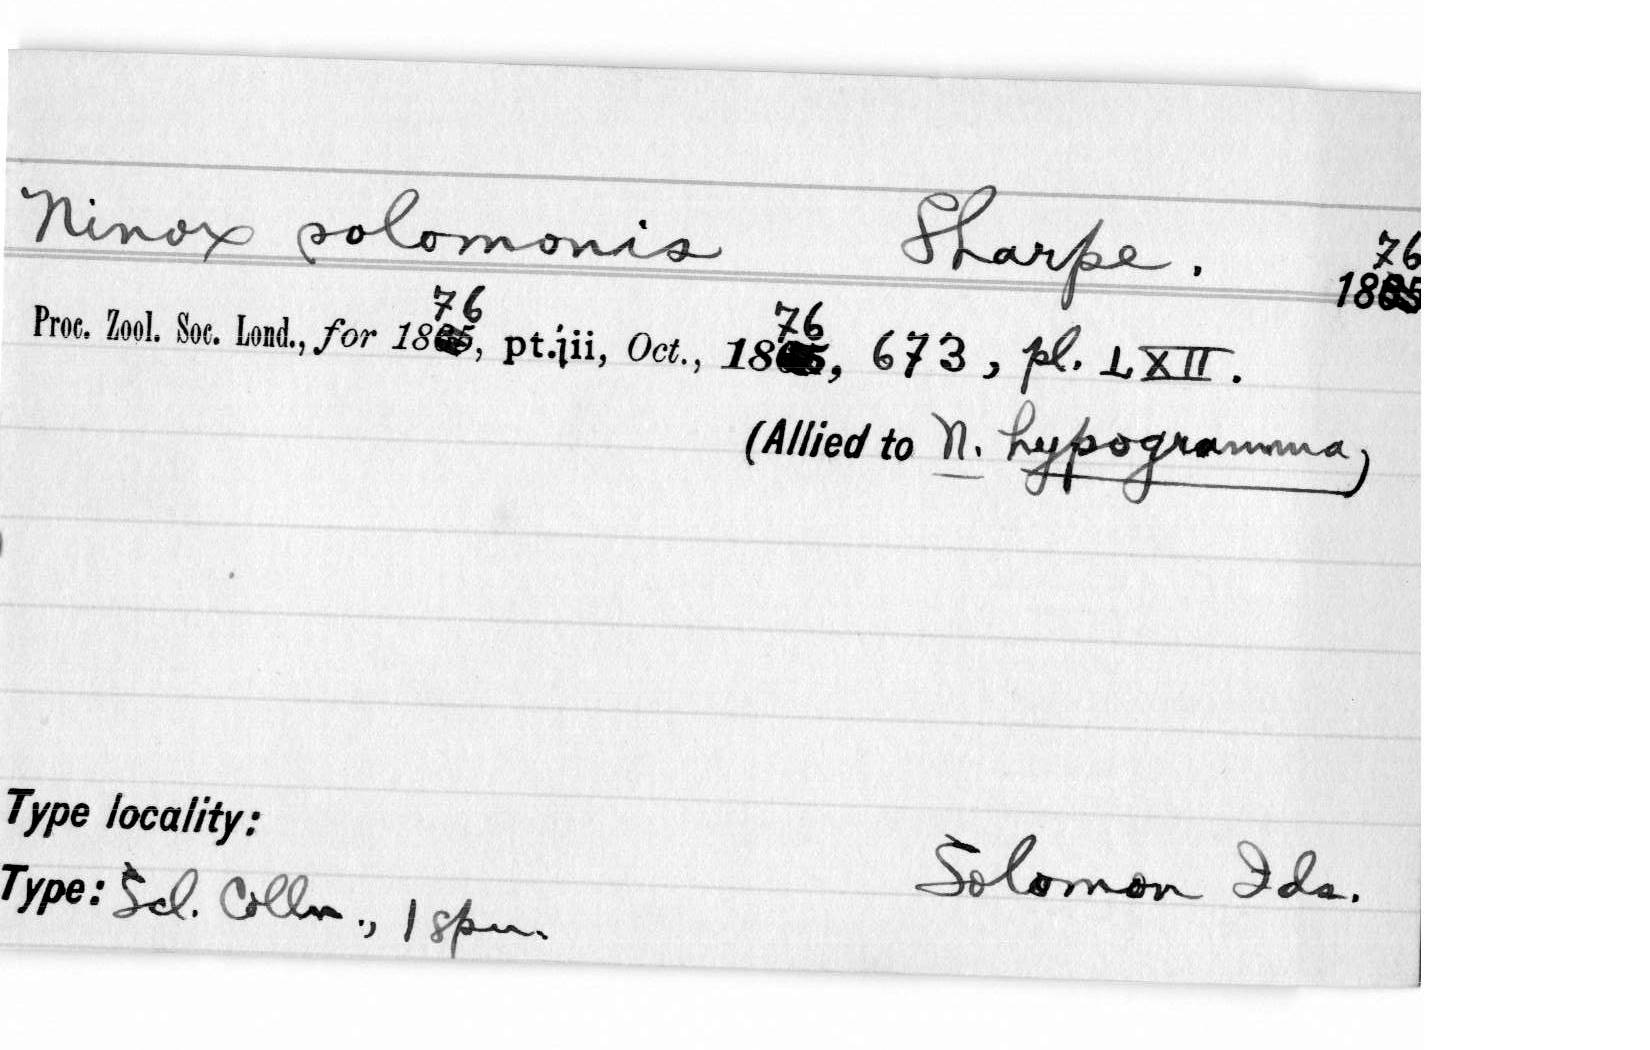 Ninox solomonis Sharpe. 1876
Proc. Zool. Soc. Lond., for 1876, pt. iii, Oct., 1876, 673, pl. LXII.
(Allied to N. hypogramma)
Type locality:
Solomon Ids.
Type: Scl. Colln., 1 spn.